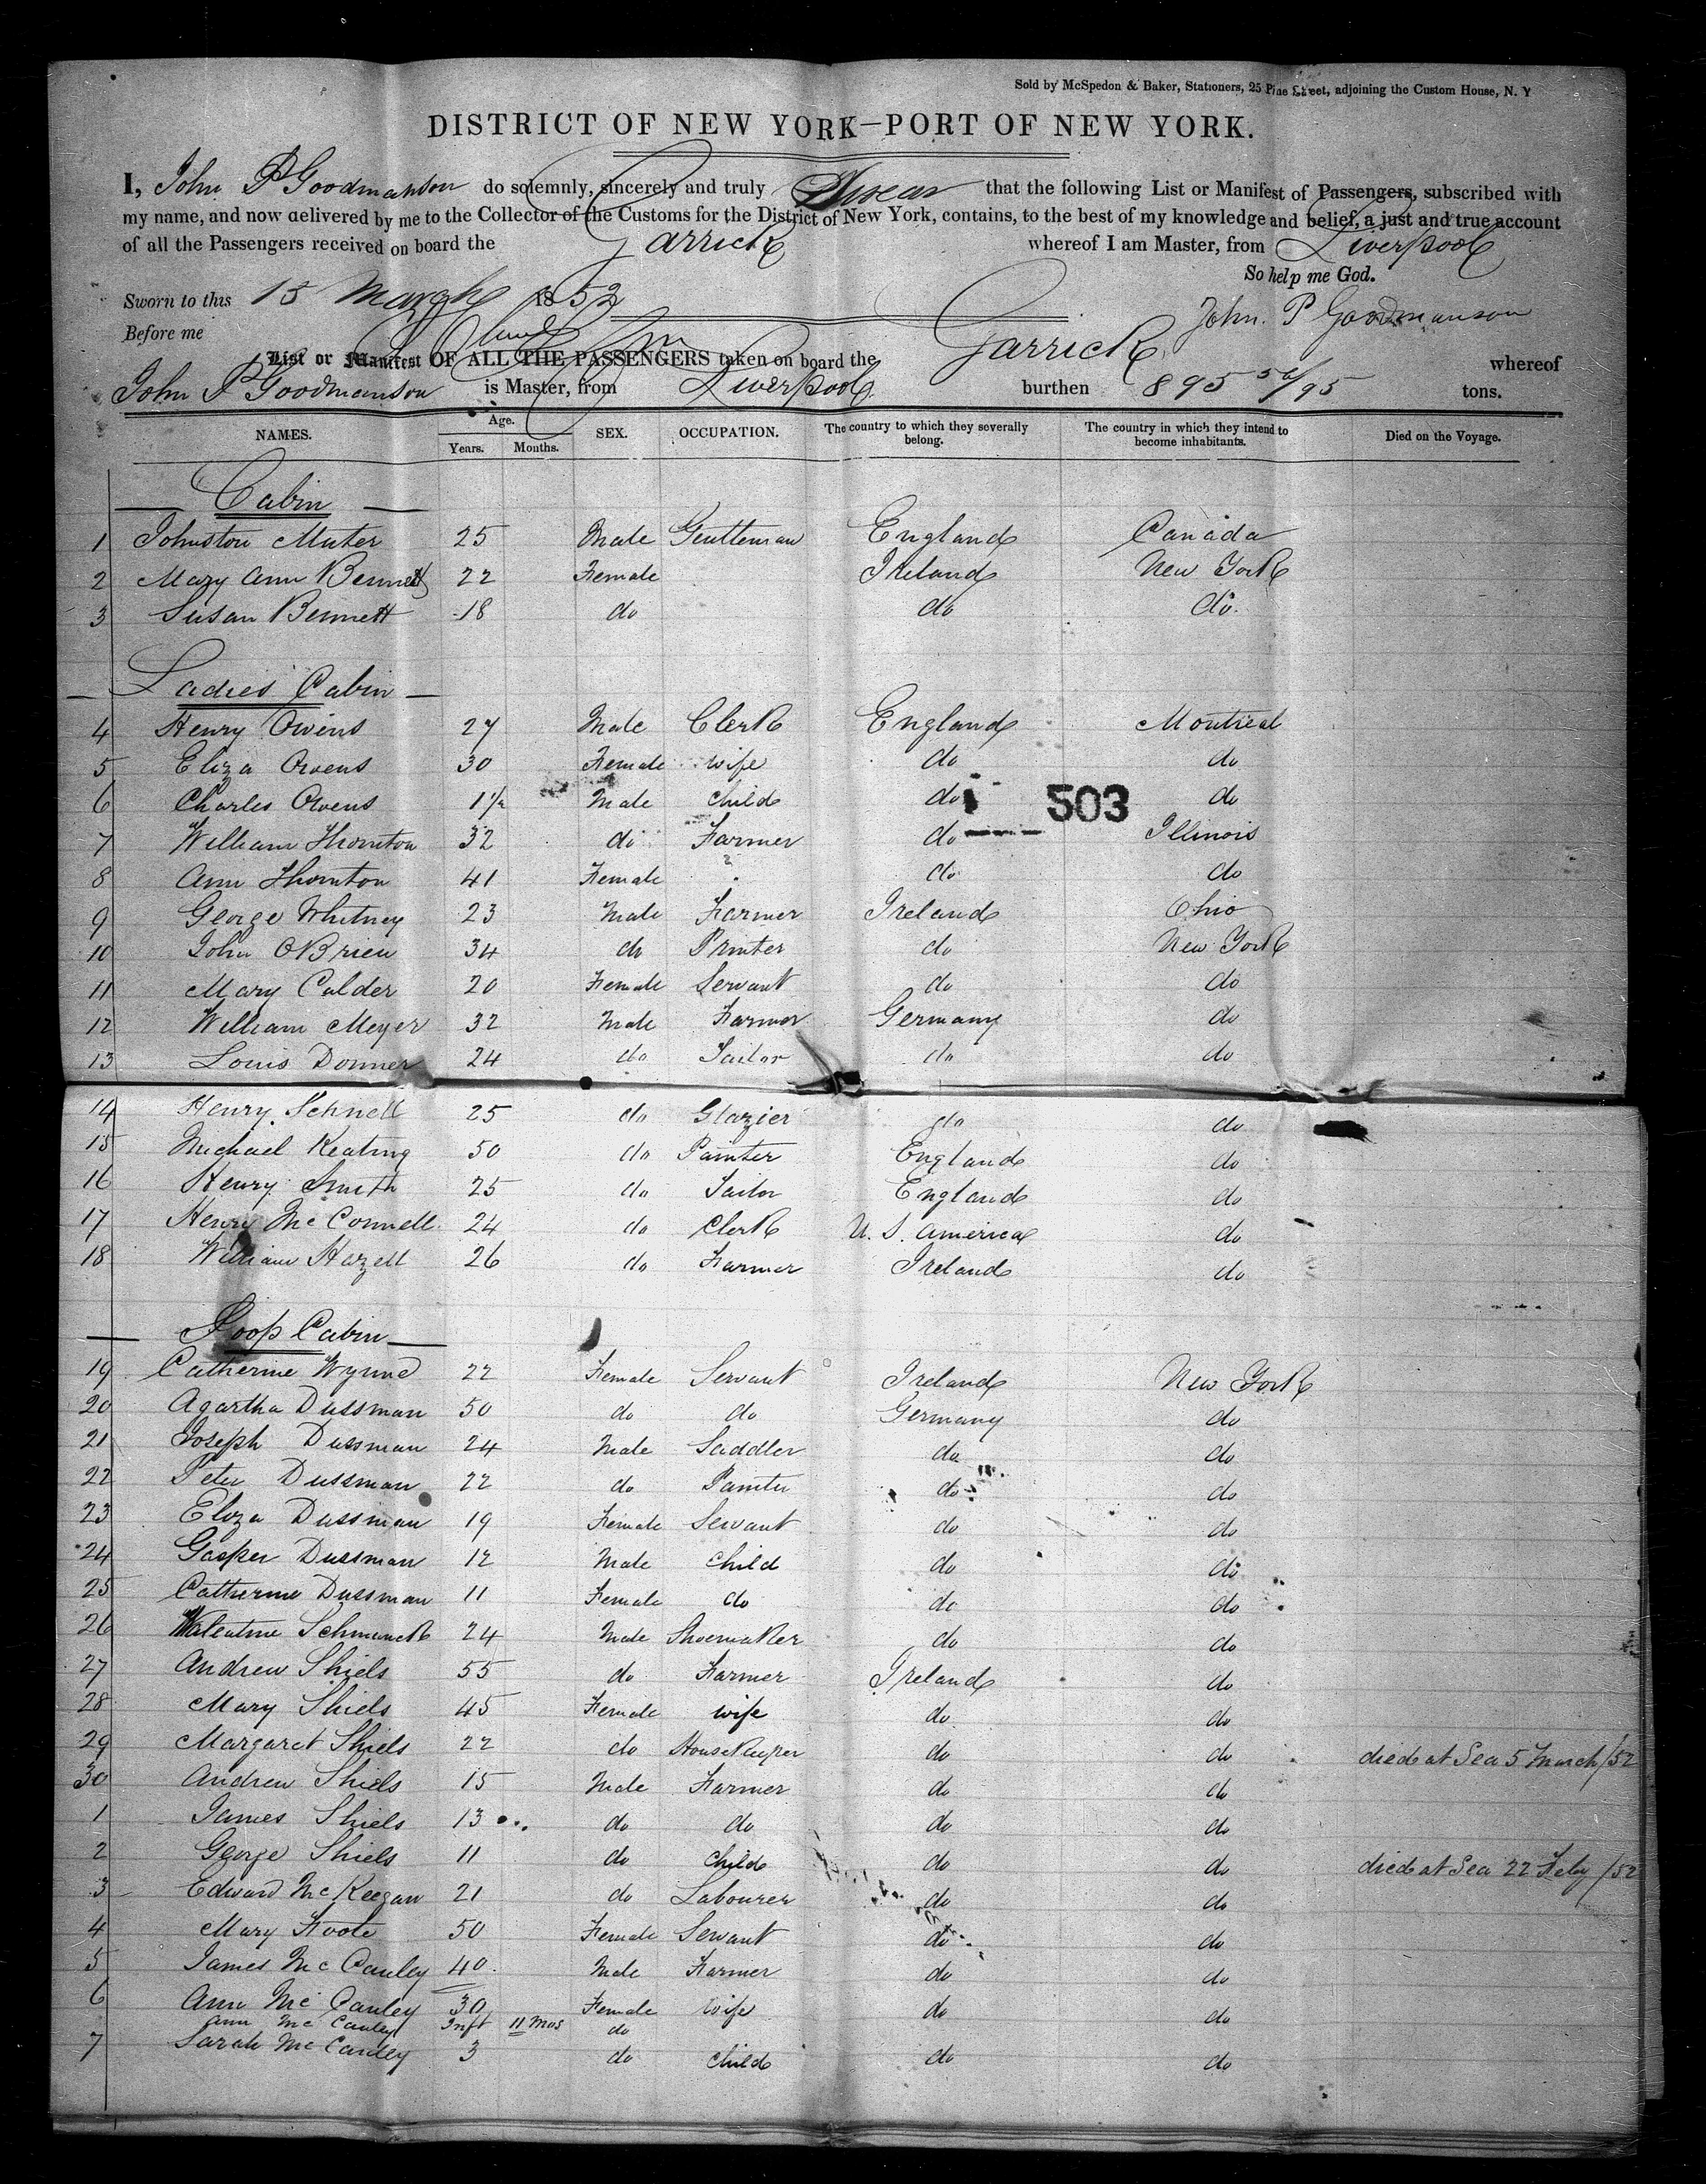 Sold by McSpedon & Baker, Stationers, 25 Pine Street, adjoining the Custom House, N. Y
DISTRICT OF NEW YORK—PORT OF NEW YORK.
I, John P Goodmanson do solemnly, sincerely and truly Swear that the following List or Manifest of Passengers, subscribed with
my name, and now delivered by me to the Collector of the Customs for the District of New York, contains, to the best of my knowledge and belief, a just and true account
of all the Passengers received on board the Garrick whereof I am Master, from Liverpool
So help me God.
Sworn to this 15 March 1852
John. P Goodmanson
Before me
List or Manifest OF ALL THE PASSENGERS taken on board the Garrick whereof
John P Goodmanson is Master, from Liverpool burthen 895 56/95 tons.
NAMES. Age. Years. Months. SEX. OCCUPATION. The country to which they severally belong. The country in which they intend to become inhabitants. Died on the Voyage.
Cabin
1 Johnston Muter 25 Male Gentleman England Canada
2 Mary Ann Bennett 22 Female Ireland New York
3 Susan Bennett 18 do do do.
Ladies Cabin
4 Henry Owens 27 Male Clerk England Montreal
5 Eliza Owens 30 Female wife do do
6 Charles Owens 1½ Male Child do do
503
7 William Thornton 32 do Farmer do Illinois
8 Ann Thornton 41 Female do do
9 George Whitney 23 Male Farmer Ireland Ohio
10 John OBrien 34 do Printer do New York
11 Mary Calder 20 Female Servant do do
12 William Meyer 32 Male Farmer Germany do
13 Louis Donner 24 do Tailor do do
14 Henry Schnell 25 do Glazier do do
15 Michael Keating 50 do Painter England do
16 Henry Smith 25 do Tailor England do
17 Henry McConnell 24 do Clerk U. S. America do
18 William Hazell 26 do Farmer Ireland do
Poop Cabin
19 Catherine Wynne 22 Female Servant Ireland New York
20 Agartha Dussman 50 do do Germany do
21 Joseph Dussman 24 Male Saddler do do
22 Peter Dussman 22 do Painter do do
23 Eliza Dussman 19 Female Servant do do
24 Gasper Dussman 12 Male Child do do
25 Catherine Dussman 11 Female do do do
26 Valentine 24 Male Shoemaker do do
27 Andrew Shiels 55 do Farmer Ireland do
28 Mary Shiels 45 Female wife do do
29 Margaret Shiels 22 do Housekeeper do do died at Sea 5 March/52
30 Andrew Shiels 15 Male Farmer do do
1 James Shiels 13 do do do do
2 George Shiels 11 do Child do do died at Sea 22 Feby /52
3 Edward McKeegan 21 do Labourer do do
4 Mary Foote 50 Female Servant do do
5 James Mc Cauley 40 Male Farmer do do
6 Ann Mc Cauley 30 Female Wife do do
Ann Mc Cauley Inft 11 Mos do
7 Sarah Mc Cauley 3 do Child do do